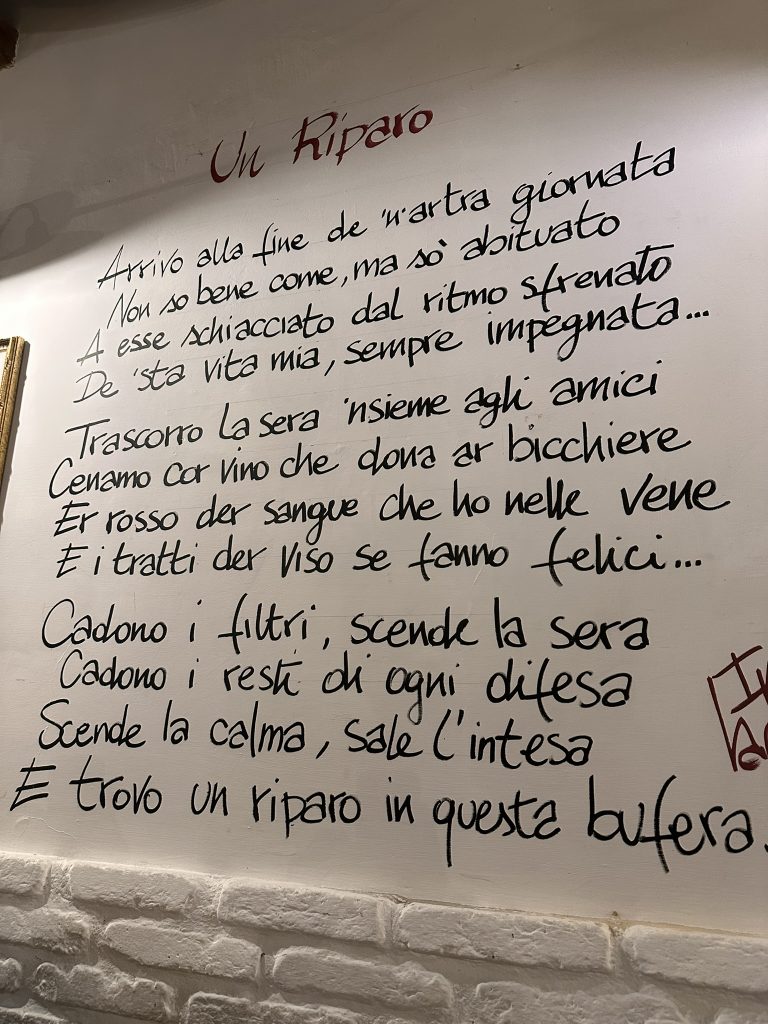 Un Riparo
Arrivo alla fine de 'n'artra giornata
Non so bene come, ma sò abituato
A esse schiacciato dal ritmo sfrenato
De 'sta vita mia, sempre impegnata...
Trascorro la sera 'nsieme agli amici
Cenamo cor vino che dona ar bicchiere
Er rosso der sangue che ho nelle vene
E i tratti der viso se fanno felici...
Cadono i filtri, scende la sera
Cadono i resti di ogni difesa
Scende la calma, sale l'intesa
E trovo un riparo in questa bufera.